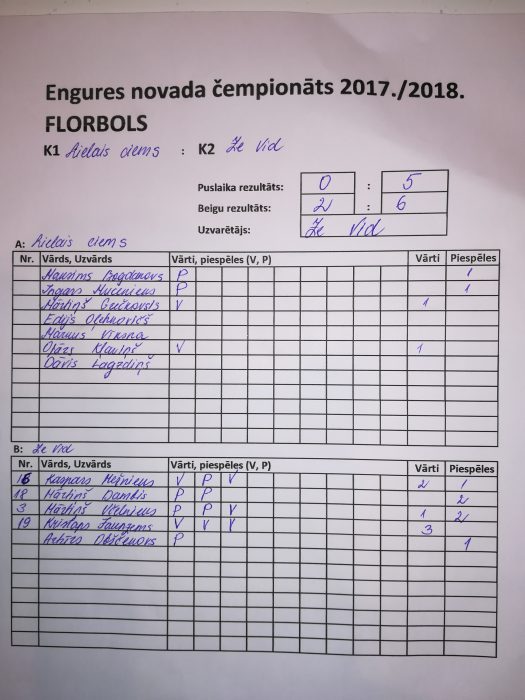 Engures novada čempionāts 2017./2018.
FLORBOLS
K1 Lielais ciems : K2 Ze Vid
Puslaika rezultāts: 0 : 5
Beigu rezultāts: 2 : 6
Uzvarētājs: Ze Vid
A: Lielais ciems
Nr. Vārds, Uzvārds Vārti, piespēles (V, P) Vārti Piespēles
Maksims Bogdanovs P 1
Ingars P 1
Mārtiņš V 1
Edijs
Markus Vīksna
V 1
Dāvis Lagzdiņš
B: Ze Vid
Nr. Vārds, Uzvārds Vārti, piespēles (V, P) Vārti Piespēles
16 Kaspars Mežnieks V P V 2 1
18 Mārtiņš Dambis P P 2
3 Mārtiņš P P V 1 2
19 Kristaps Jaunzems V V V 3
P 1